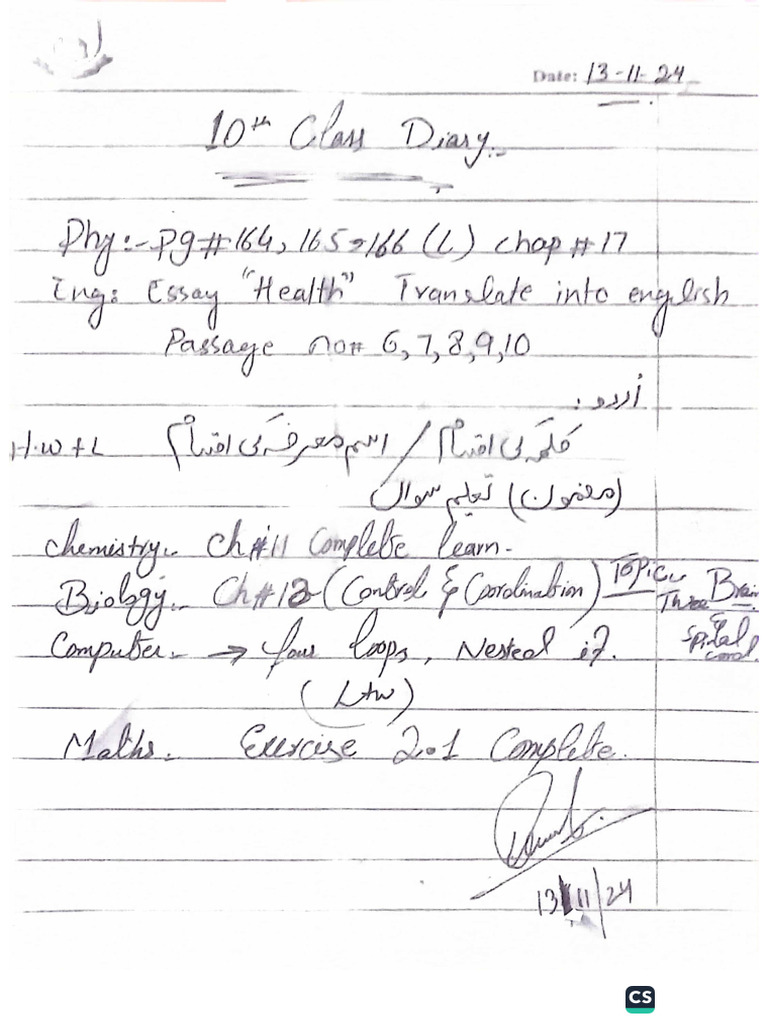 Date: 13-11-24
10th Class Diary.
Phy:- Pg#164, 165, 166 (L) chap #17
Eng: Essay "Health" Translate into english
Passage no# 6,7,8,9,10
اُردو:
کلمہ کی اقسام / اسم معرفہ کی اقسام H.w+L
(مضمون) تعلیم سوال
Chemistry:- Ch#11 Complete learn.
Biology:- Ch#12 (Control & Coordination) Topic:- Three Brain
& Spital cord.
Computer:- → four loops, Nested if.
(L+w)
Maths:- Exercise 2.1 Complete.
13/11/24
CS